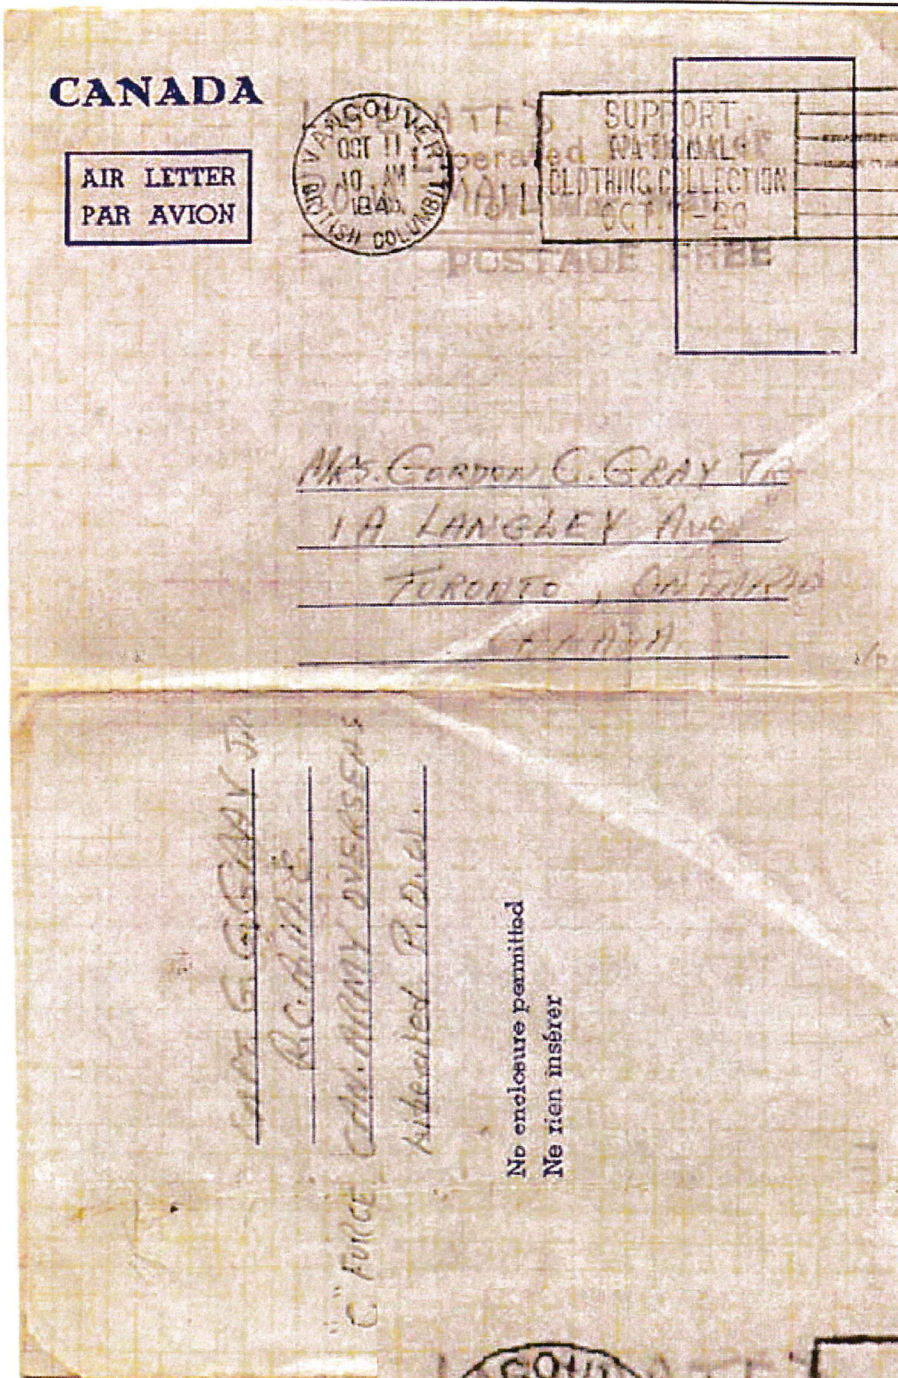 CANADA
AIR LETTER
PAR AVION
VANCOUVER
OCT 11
10 AM
BRITISH COLUMBIA
SUPPORT
NATIONAL
CLOTHING COLLECTION
OCT 1-20
Liberated
MAIL
POSTAGE FREE
MRS. GORDON C. GRAY JR
1A LANGLEY AVE
TORONTO, ONTARIO
CANADA
CAPT. G. C. GRAY JR
"C" FORCE CAN. ARMY OVERSEAS
Liberated P.O.W.
No enclosure permitted
Ne rien insérer